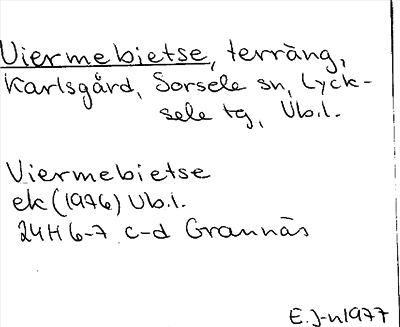 Viermebietse, terräng,
Karlsgård, Sorsele sn, Lyck-
sele tg, Vb.l.
Viermebietse
ek (1976) Vb.l.
24H 6-7 c-d Grannäs
E.J-n 1977